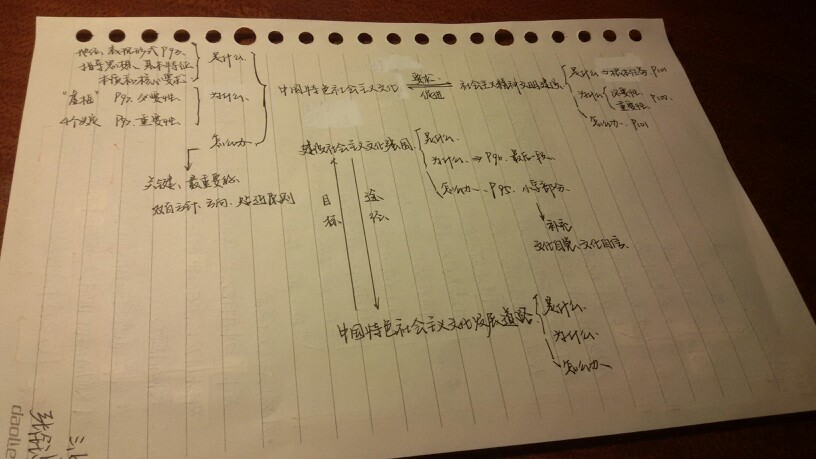 地位、表现形式 P93.
指导思想、基本特征
本质和核心要求
是什么.
P93. 必要性.
为什么.
P93. 重要性.
怎么办
关键、最重要的.
双百方针、方向、贴近原则
中国特色社会主义文化
要求
促进
社会主义精神文明建设
是什么→根本任务 P101
为什么
必要性.
重要性. P102.
怎么办. P101
建设社会主义文化强国
是什么.
为什么→P90. 最后一段.
怎么办. P95. 小字部分.
补充
文化自觉、文化自信.
目标
途径.
中国特色社会主义文化发展道路
是什么.
为什么.
怎么办